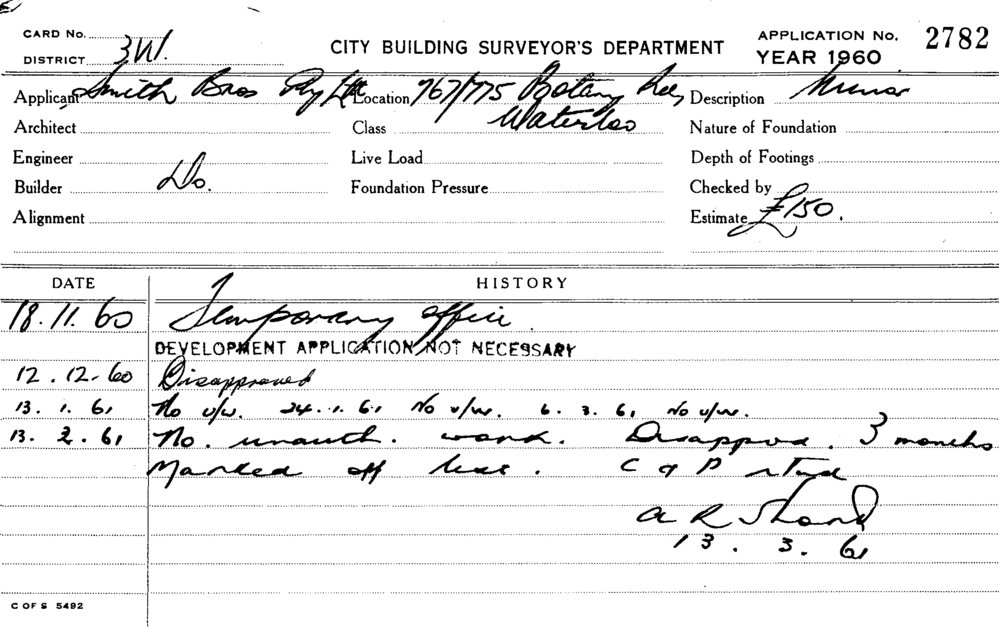 CARD No.
DISTRICT 3W.
CITY BUILDING SURVEYOR'S DEPARTMENT
APPLICATION No. 2782
YEAR 1960
Applicant Smith Bros Pty Ltd Location 767/775 Botany Rd, Description Minor
Architect Class Waterloo Nature of Foundation
Engineer Live Load Depth of Footings
Builder Do. Foundation Pressure Checked by
Alignment Estimate £150.
DATE HISTORY
18.11.60 Temporary office.
DEVELOPMENT APPLICATION NOT NECESSARY
12.12.60 Disapproved
13.1.61 No u/w. 24.1.61 No u/w. 6.3.61 No u/w.
13.2.61 No. unauth. work. Disapprvd. 3 months
Marked off
C & P rtnd
A R
13.3.61
C OF S 5492